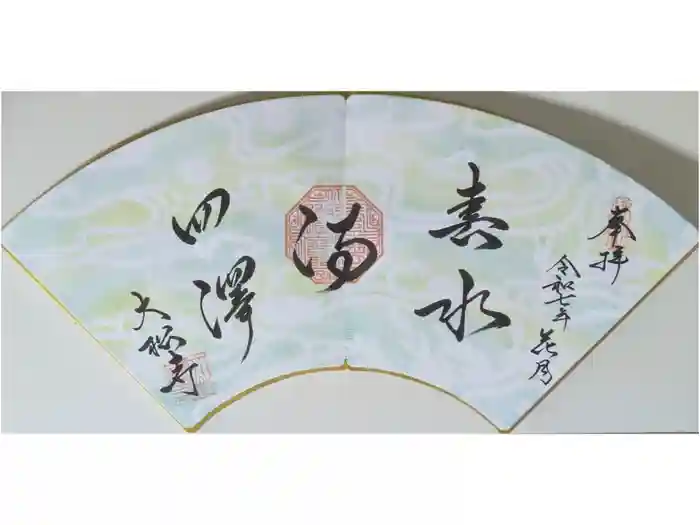 奉拝
令和七年 花月
春水
満
四澤
大慈寺